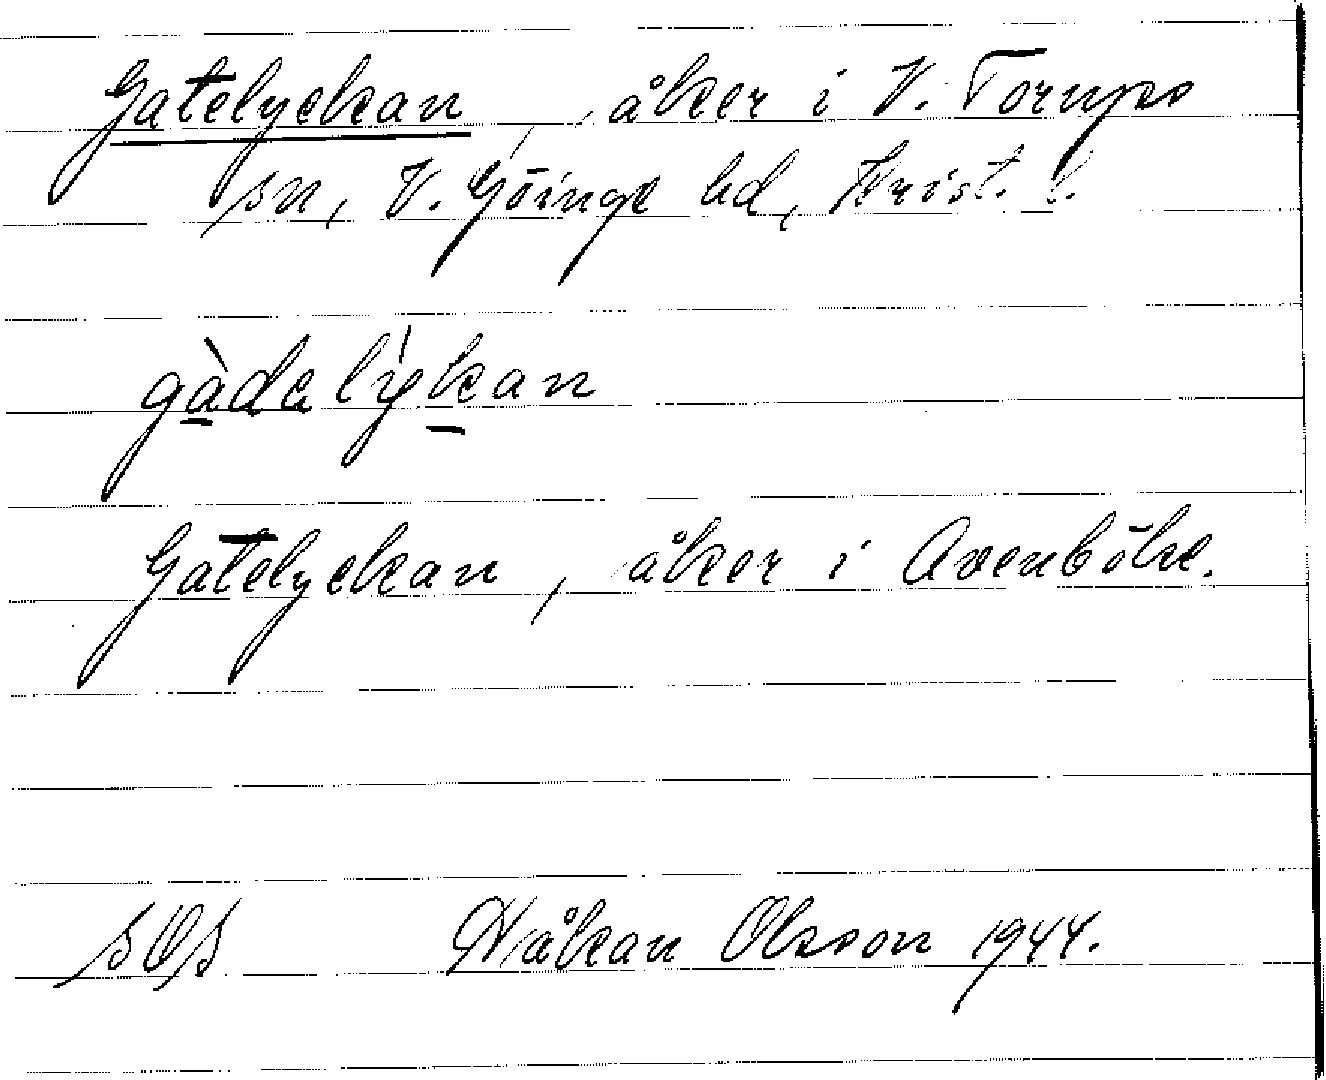 Gatelyckan, åker i V. Torups
sn, V. Göinge hd, Krist. l.
gàdalỳkan
Gatelyckan, åker i Avenböke.
SOS Håkan Olsson 1944.